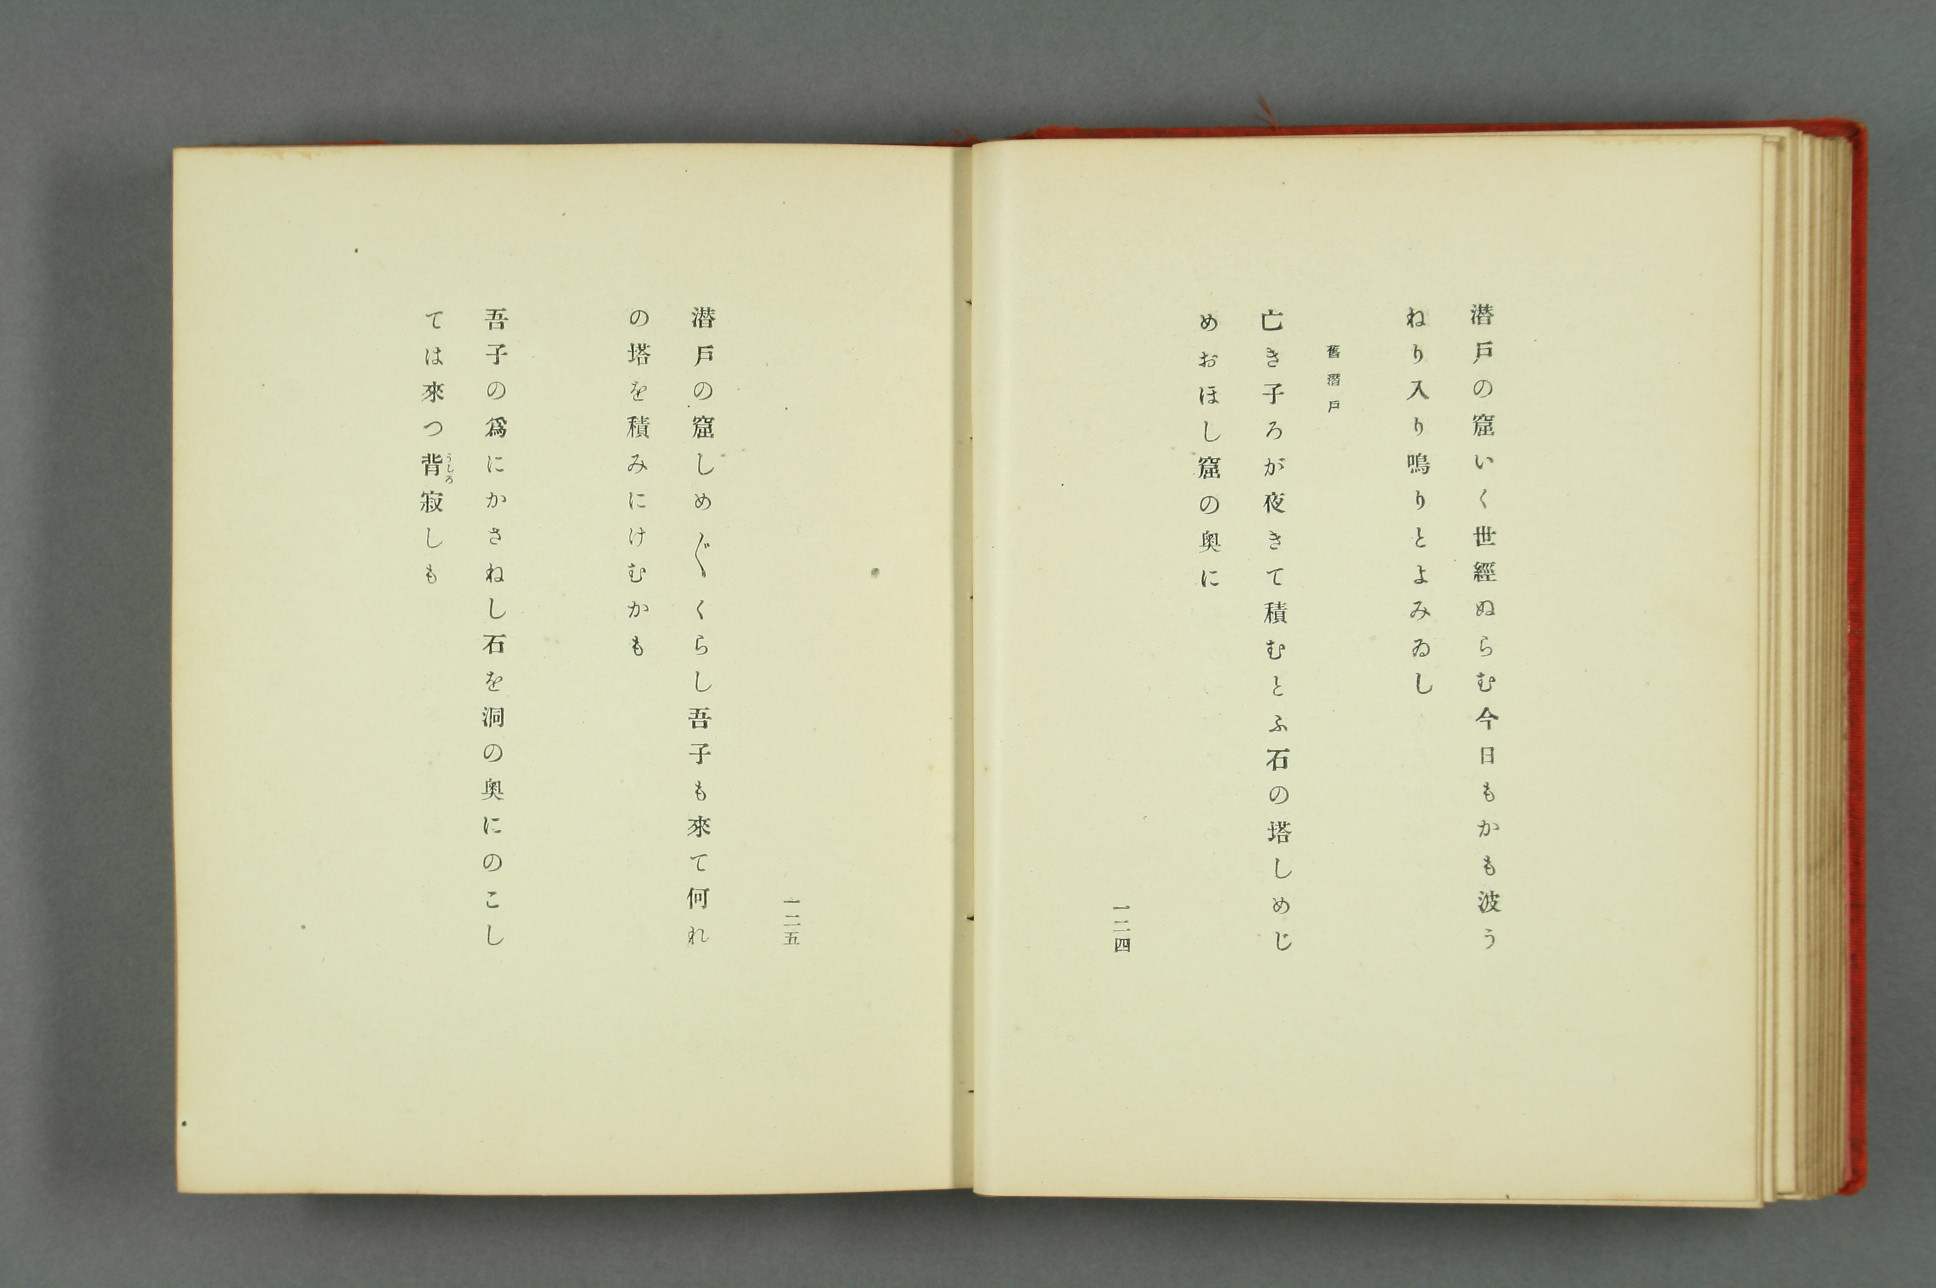 潜戸の窟いく世經ぬらむ今日もかも波う
ねり入り鳴りとよみゐし
舊潜戸
亡き子ろが夜きて積むとふ石の塔しめじ
めおほし窟の奥に
一二四
潜戸の窟しめ〴〵くらし吾子も來て何れ
の塔を積みにけむかも
吾子の爲にかさねし石を洞の奥にのこし
ては來つ背うしろ寂しも
一二五